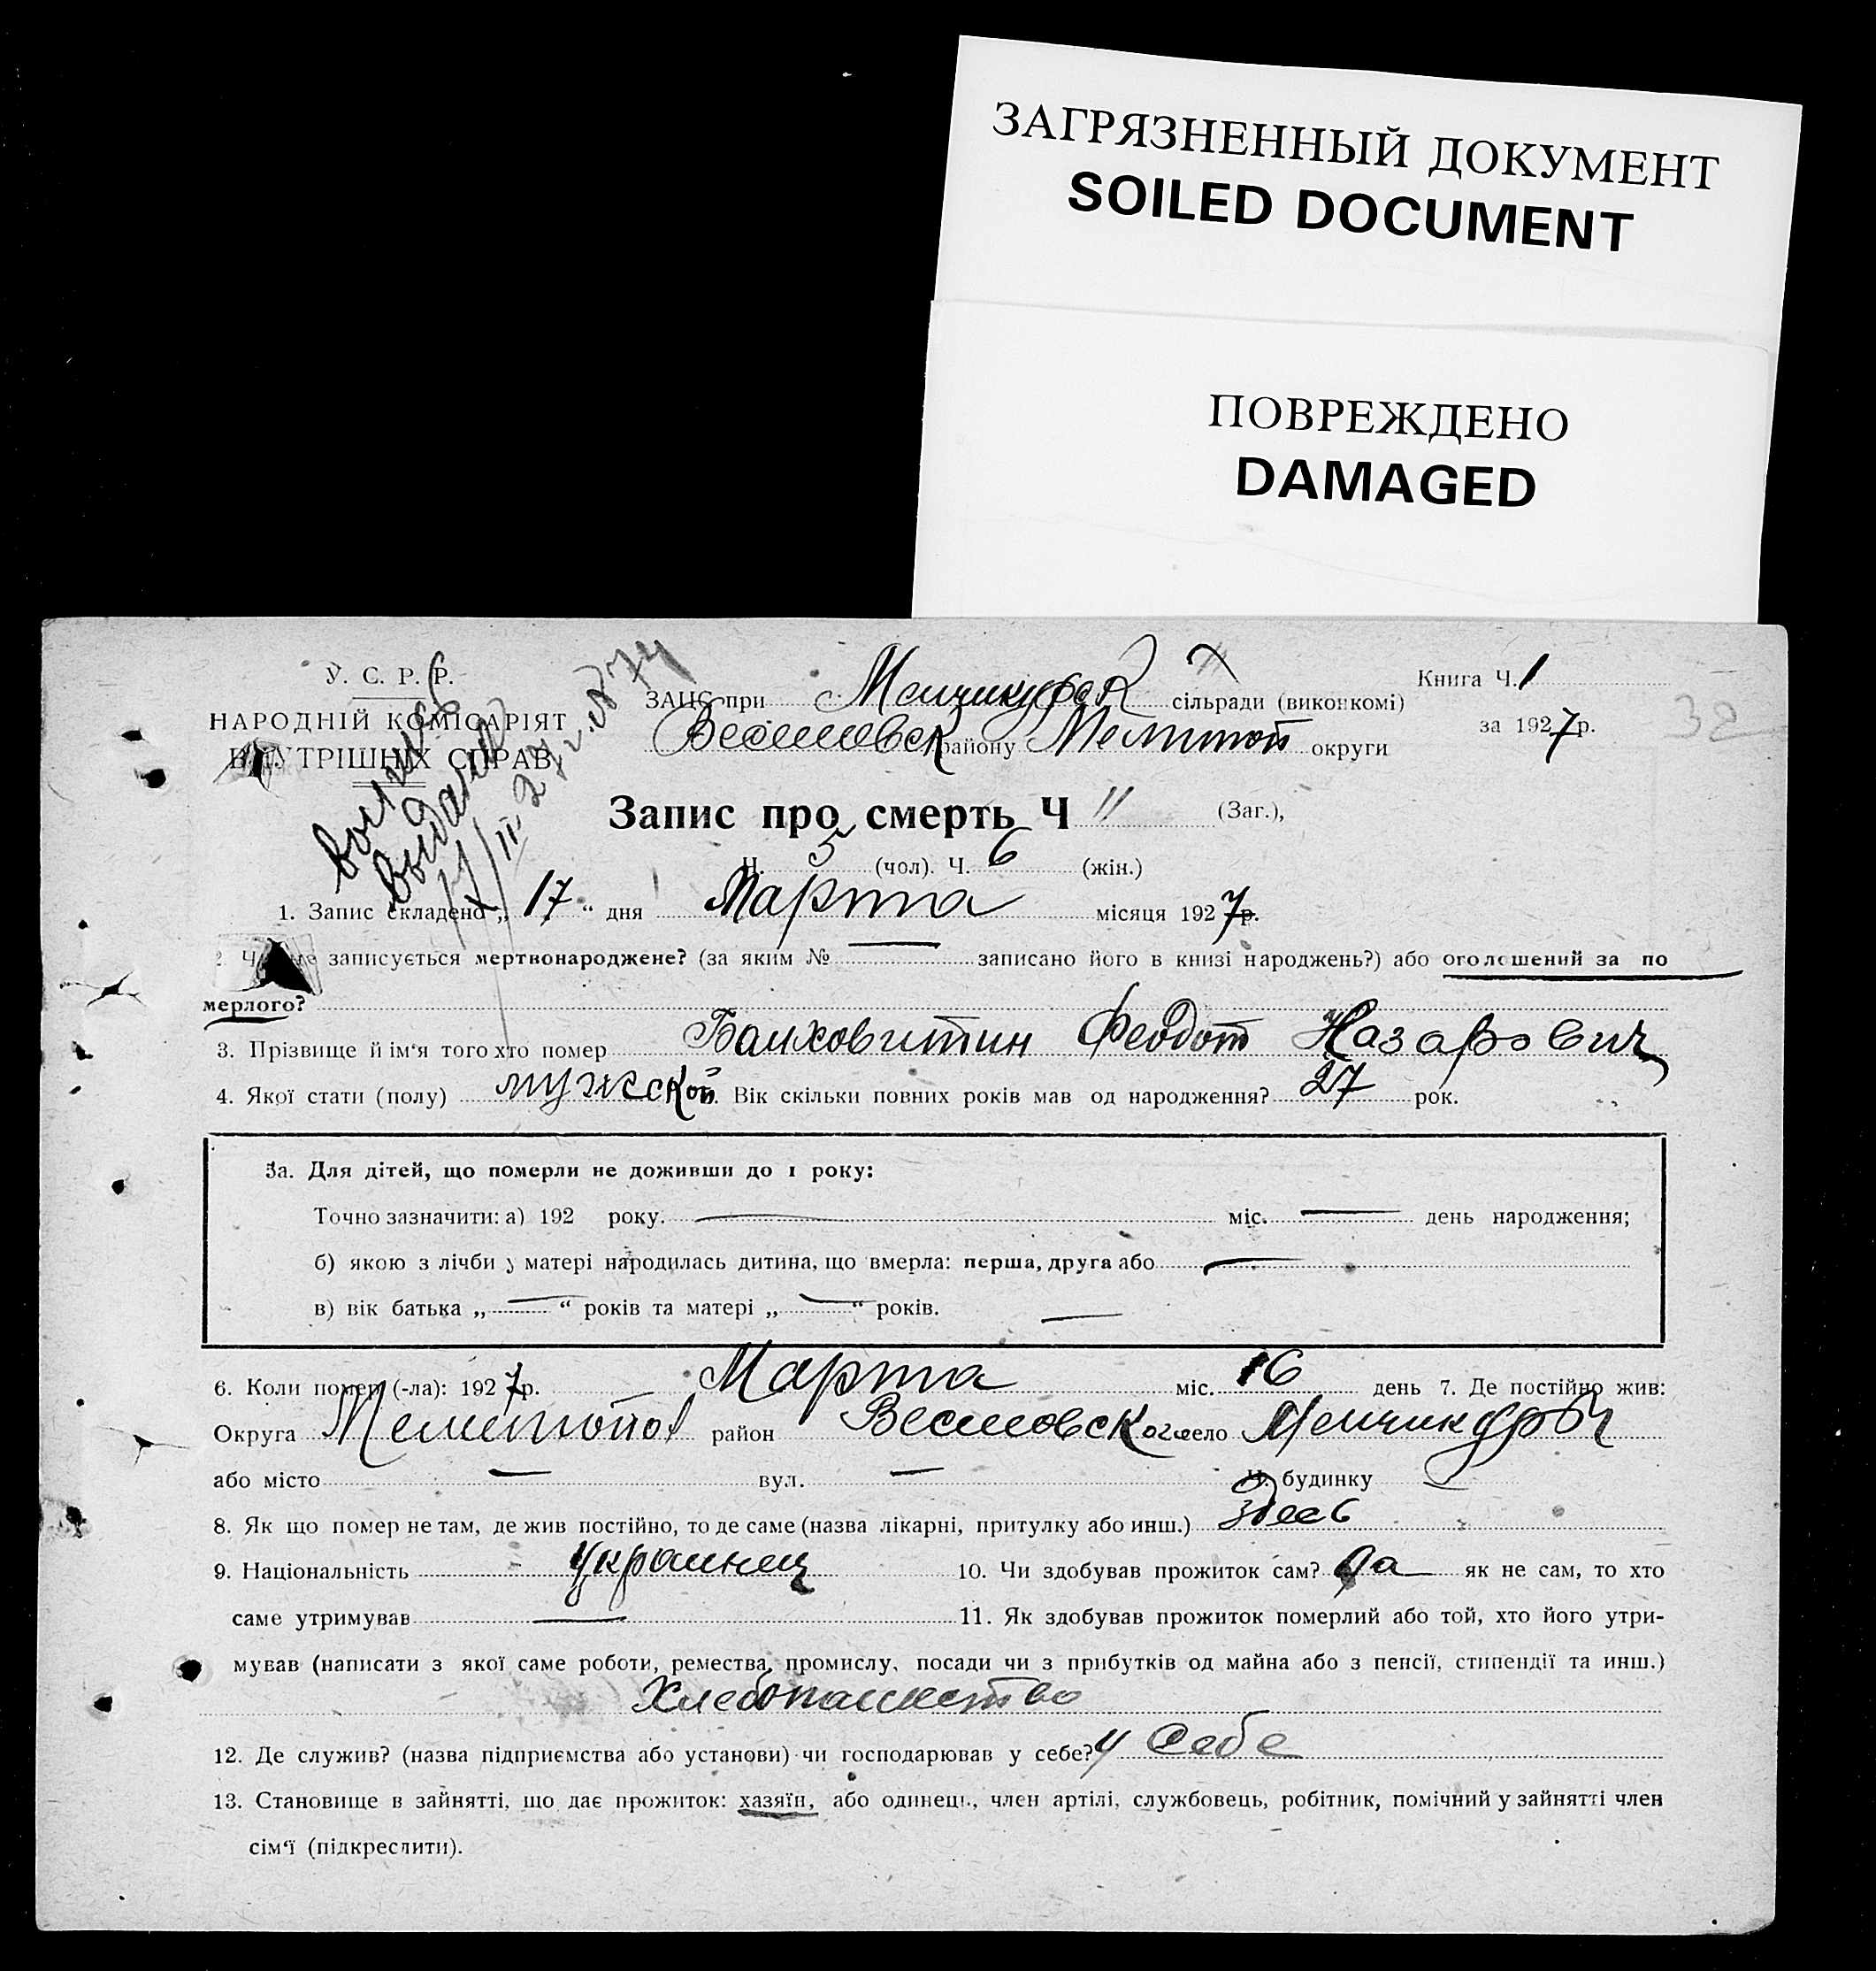 ЗАГРЯЗНЕННЫЙ ДОКУМЕНТ
SOILED DOCUMENT
ПОВРЕЖДЕНО
DAMAGED
У. С. Р. Р.
НАРОДНІЙ КОМІСАРІЯТ
ВНУТРІШНІХ СПРАВ
выдана
ЗАЦС при Менчикурск сільради (виконкомі)
Веселовск району Мелитоп округи
Книга Ч. 1
за 1927 р.
32
Запис про смерть Ч 11 (Заг.),
Ч. 5 (чол). Ч. 6 (жін.)
1. Запис складено „ 17 “ дня Марта місяця 1927р.
2. Чи не записується мертвонароджене? (за яким № — записано його в книзі народжень?) або оголошений за по
мерлого?
3. Прізвище й ім‘я того хто помер Балховитин Феодот Назарович
4. Якої стати (полу) мужской. Вік скільки повних років мав од народження? 27 рок.
3а. Для дітей, що померли не доживши до 1 року:
Точно зазначити: а) 192 року. — міс. — день народження;
б) якою з лічби у матері народилась дитина, що вмерла: перша, друга або —
в) вік батька „ — “ років та матері „ — “ років. —
6. Коли помер (-ла): 1927р. Марта міс. 16 день 7. Де постійно жив:
Округа Мелитопол район Веселовског село Менчикуры
або місто — вул. — Ч. будинку
8. Як що помер не там, де жив постійно, то де саме (назва лікарні, притулку або инш.) здесь
9. Національність украинец 10. Чи здобував прожиток сам? да як не сам, то хто
саме утримував — 11. Як здобував прожиток померлий або той, хто його утри-
мував (написати з якої саме роботи, ремества, промислу, посади чи з прибутків од майна або з пенсії, стипендії та инш.)
Хлебопашество
12. Де служив? (назва підприємства або установи) чи господарював у себе? у себе
13. Становище в зайнятті, що дає прожиток: хазяїн, або одинець, член артілі, службовець, робітник, помічний у зайнятті член
сім‘ї (підкреслити).